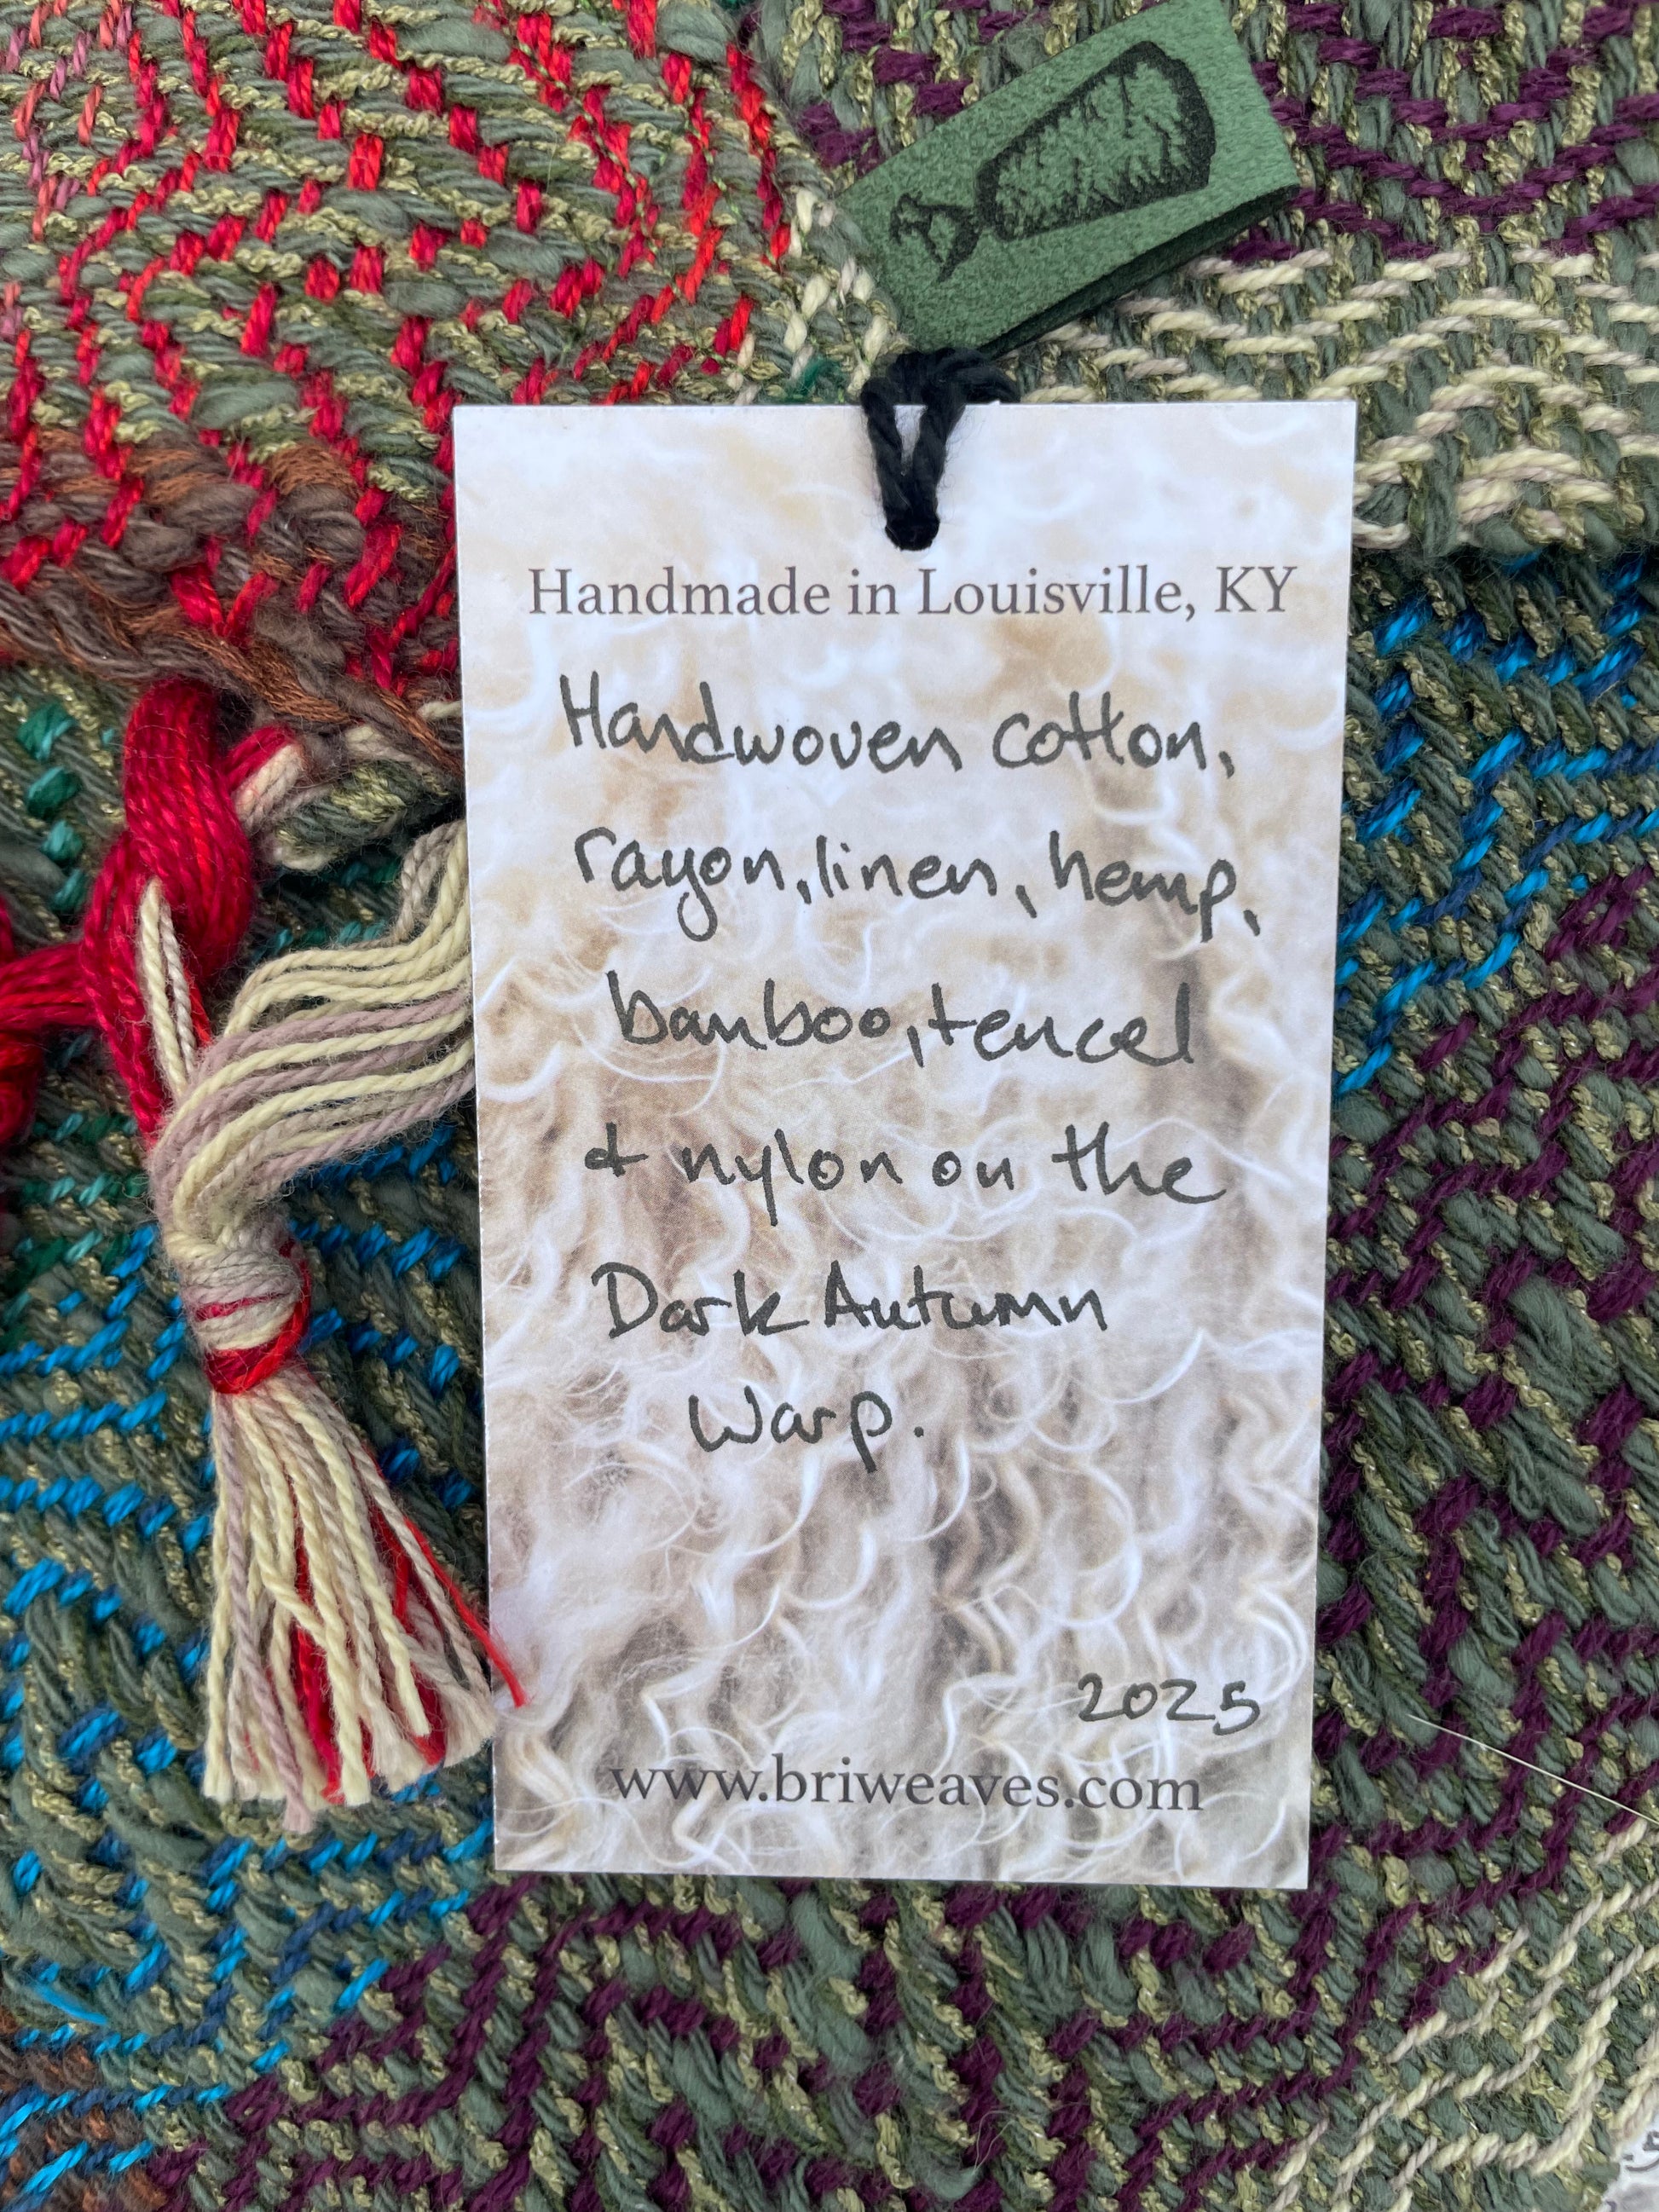 Handmade in Louisville, KY
Handwoven cotton,
rayon, linen, hemp,
bamboo, tencel
& nylon on the
Dark Autumn
Warp.
2025
www.briweaves.com